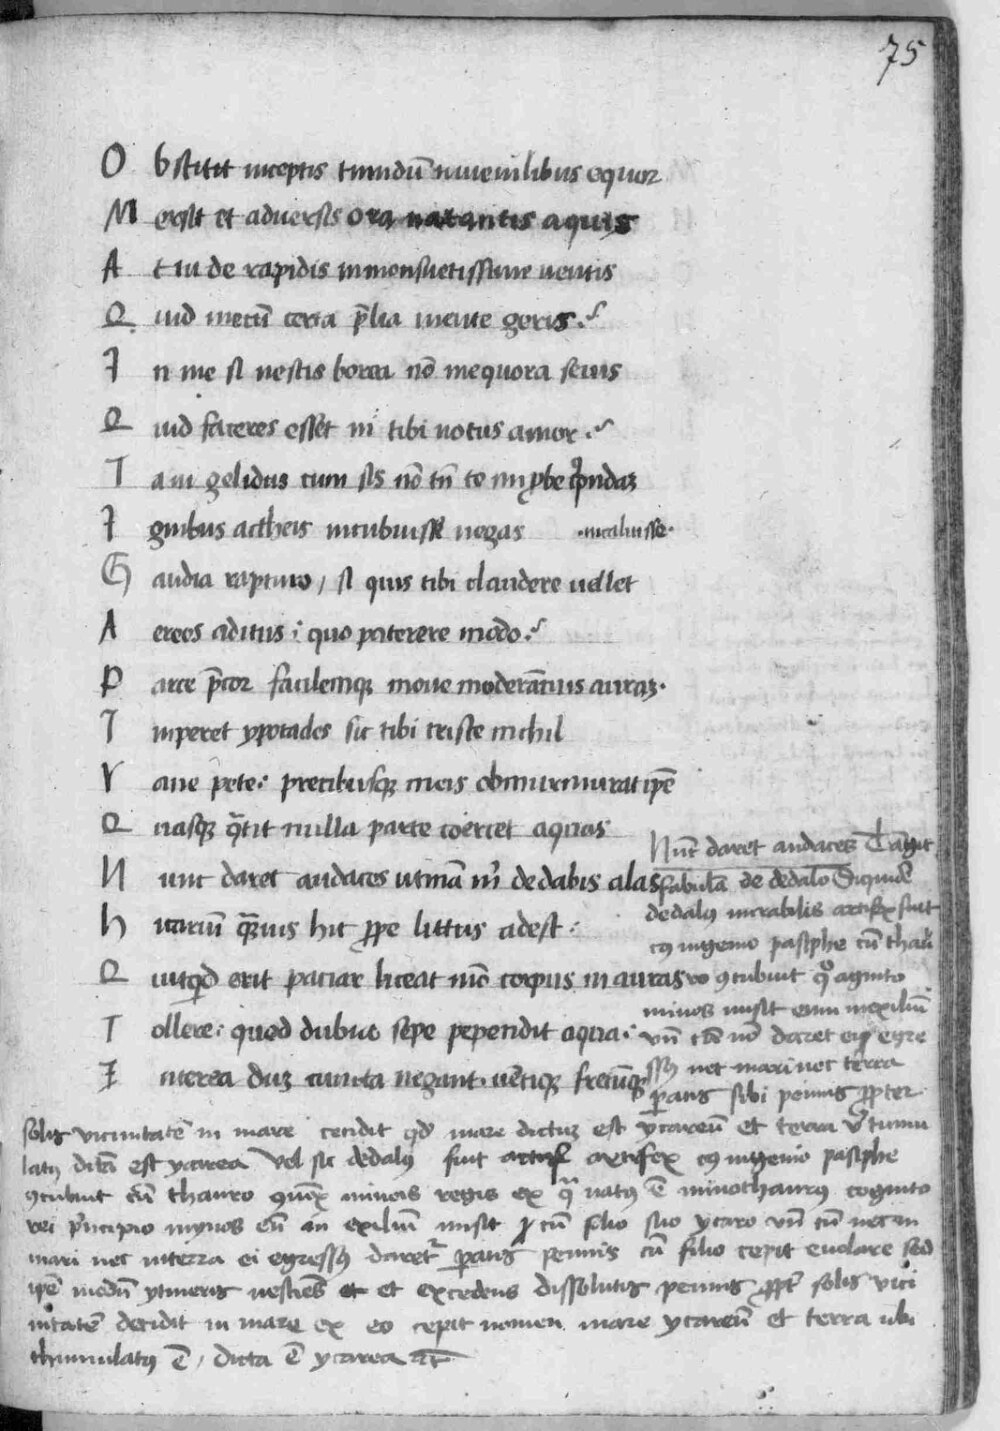 75
O bstitit inceptis tumidū iuuenilibus equor
M ersit et aduersis ora natantis aquis
A t tu de rapidis inmansuetissime uentis
Q uid mecū certa p̄lia mente geris.
I n me si nescis borea nō inequora seuis
Q uid faceres esset ni tibi notus amor.
T am gelidus cum sis nō tn̄ te improbe quondaʒ
I gnibus actheis incubuisse negas .incaluisse.
G audia rapturo, si quis tibi claudere uellet
A ereos aditus: quo paterere modo.
P arce p̄cor facilemqʒ moue moderātius auraʒ.
I mperet ypotades sic tibi triste nichil
V ane pete: precibusqʒ meis obmurmurat ipē
Q uasqʒ q̄tit nulla parte coercet aquas
N unc daret audaces utinā m̄ dedalis alas
h icariū q̄uis hic ꝓpe littus adest:
Q uicqd erit patiar liceat mō corpus in auras
T ollere: quod dubia sepe pependit aqua:
I nterea duʒ cuncta negant uētiqʒ fretūqʒ
Nūc daret audaces Tāgit
fabulā de dedalo Siquidē
dedalꝰ mirabilis artifex fuit
cꝰ ingenio pasiphe cū thau
ro ꝯcubuit qº agnito
minos misit eum inexiliū
vn̄ cū nō daret ei egre
ssꝰ nec mari nec terra
ꝑatis sibi pennis ꝓpter
solis vicinitatē in mare cecidit qd mare dictuʒ est ycareū et terra vbi tumu
latꝰ dicta est ycarea Vel sic dedalꝰ fuit artifex cꝰ ingenio pasiphe
ꝯcubuit cū thauro ꝯiux minois regis ex q natꝰ ē minothaurꝰ cognito
rei p̄ncipio mynos eū in exiliū misit cū filio suo ycaro vn̄ cū nec in
mari nec interra ei egressꝰ daretr ꝑatis pennis cū filio cepit euolare sed
ipē modū ytineris nesciēs et excedens dissolutis pennis ꝓpt solis vici
nitatē decidit in mare ex eo cepit nomen mare ycareū et terra ubi
thumulatꝰ ē, dicta ē ycarea